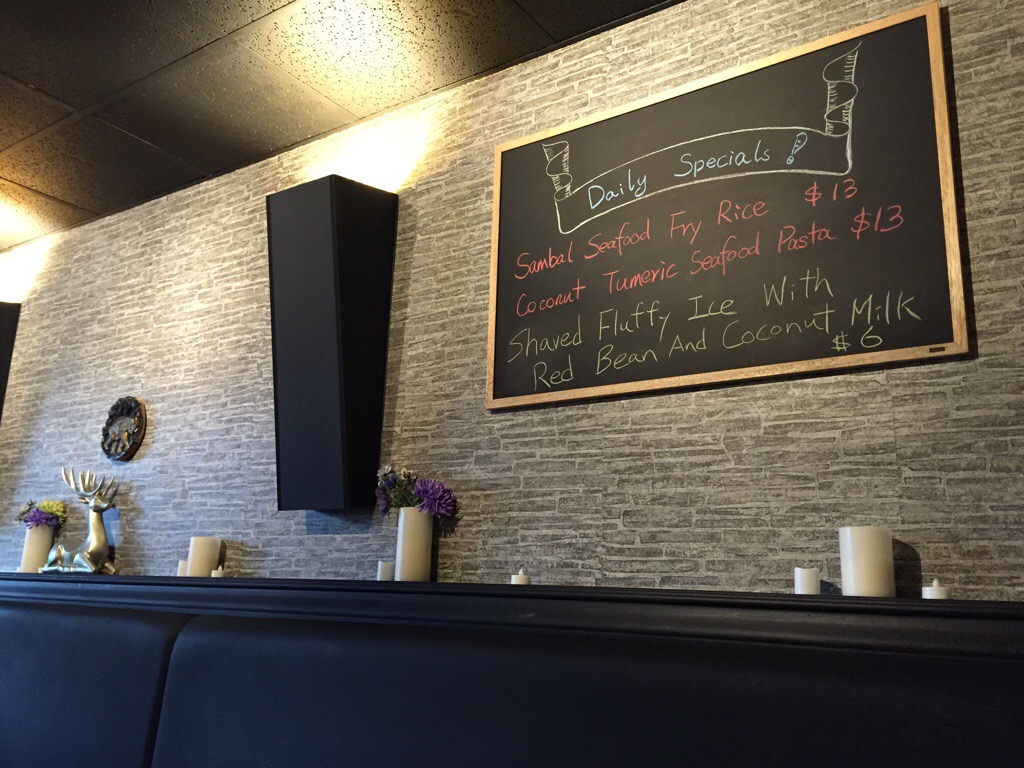 Daily Specials !
Sambal Seafood Fry Rice $13
Coconut Tumeric Seafood Pasta $13
Shaved Fluffy Ice With
Red Bean And Coconut Milk
$6